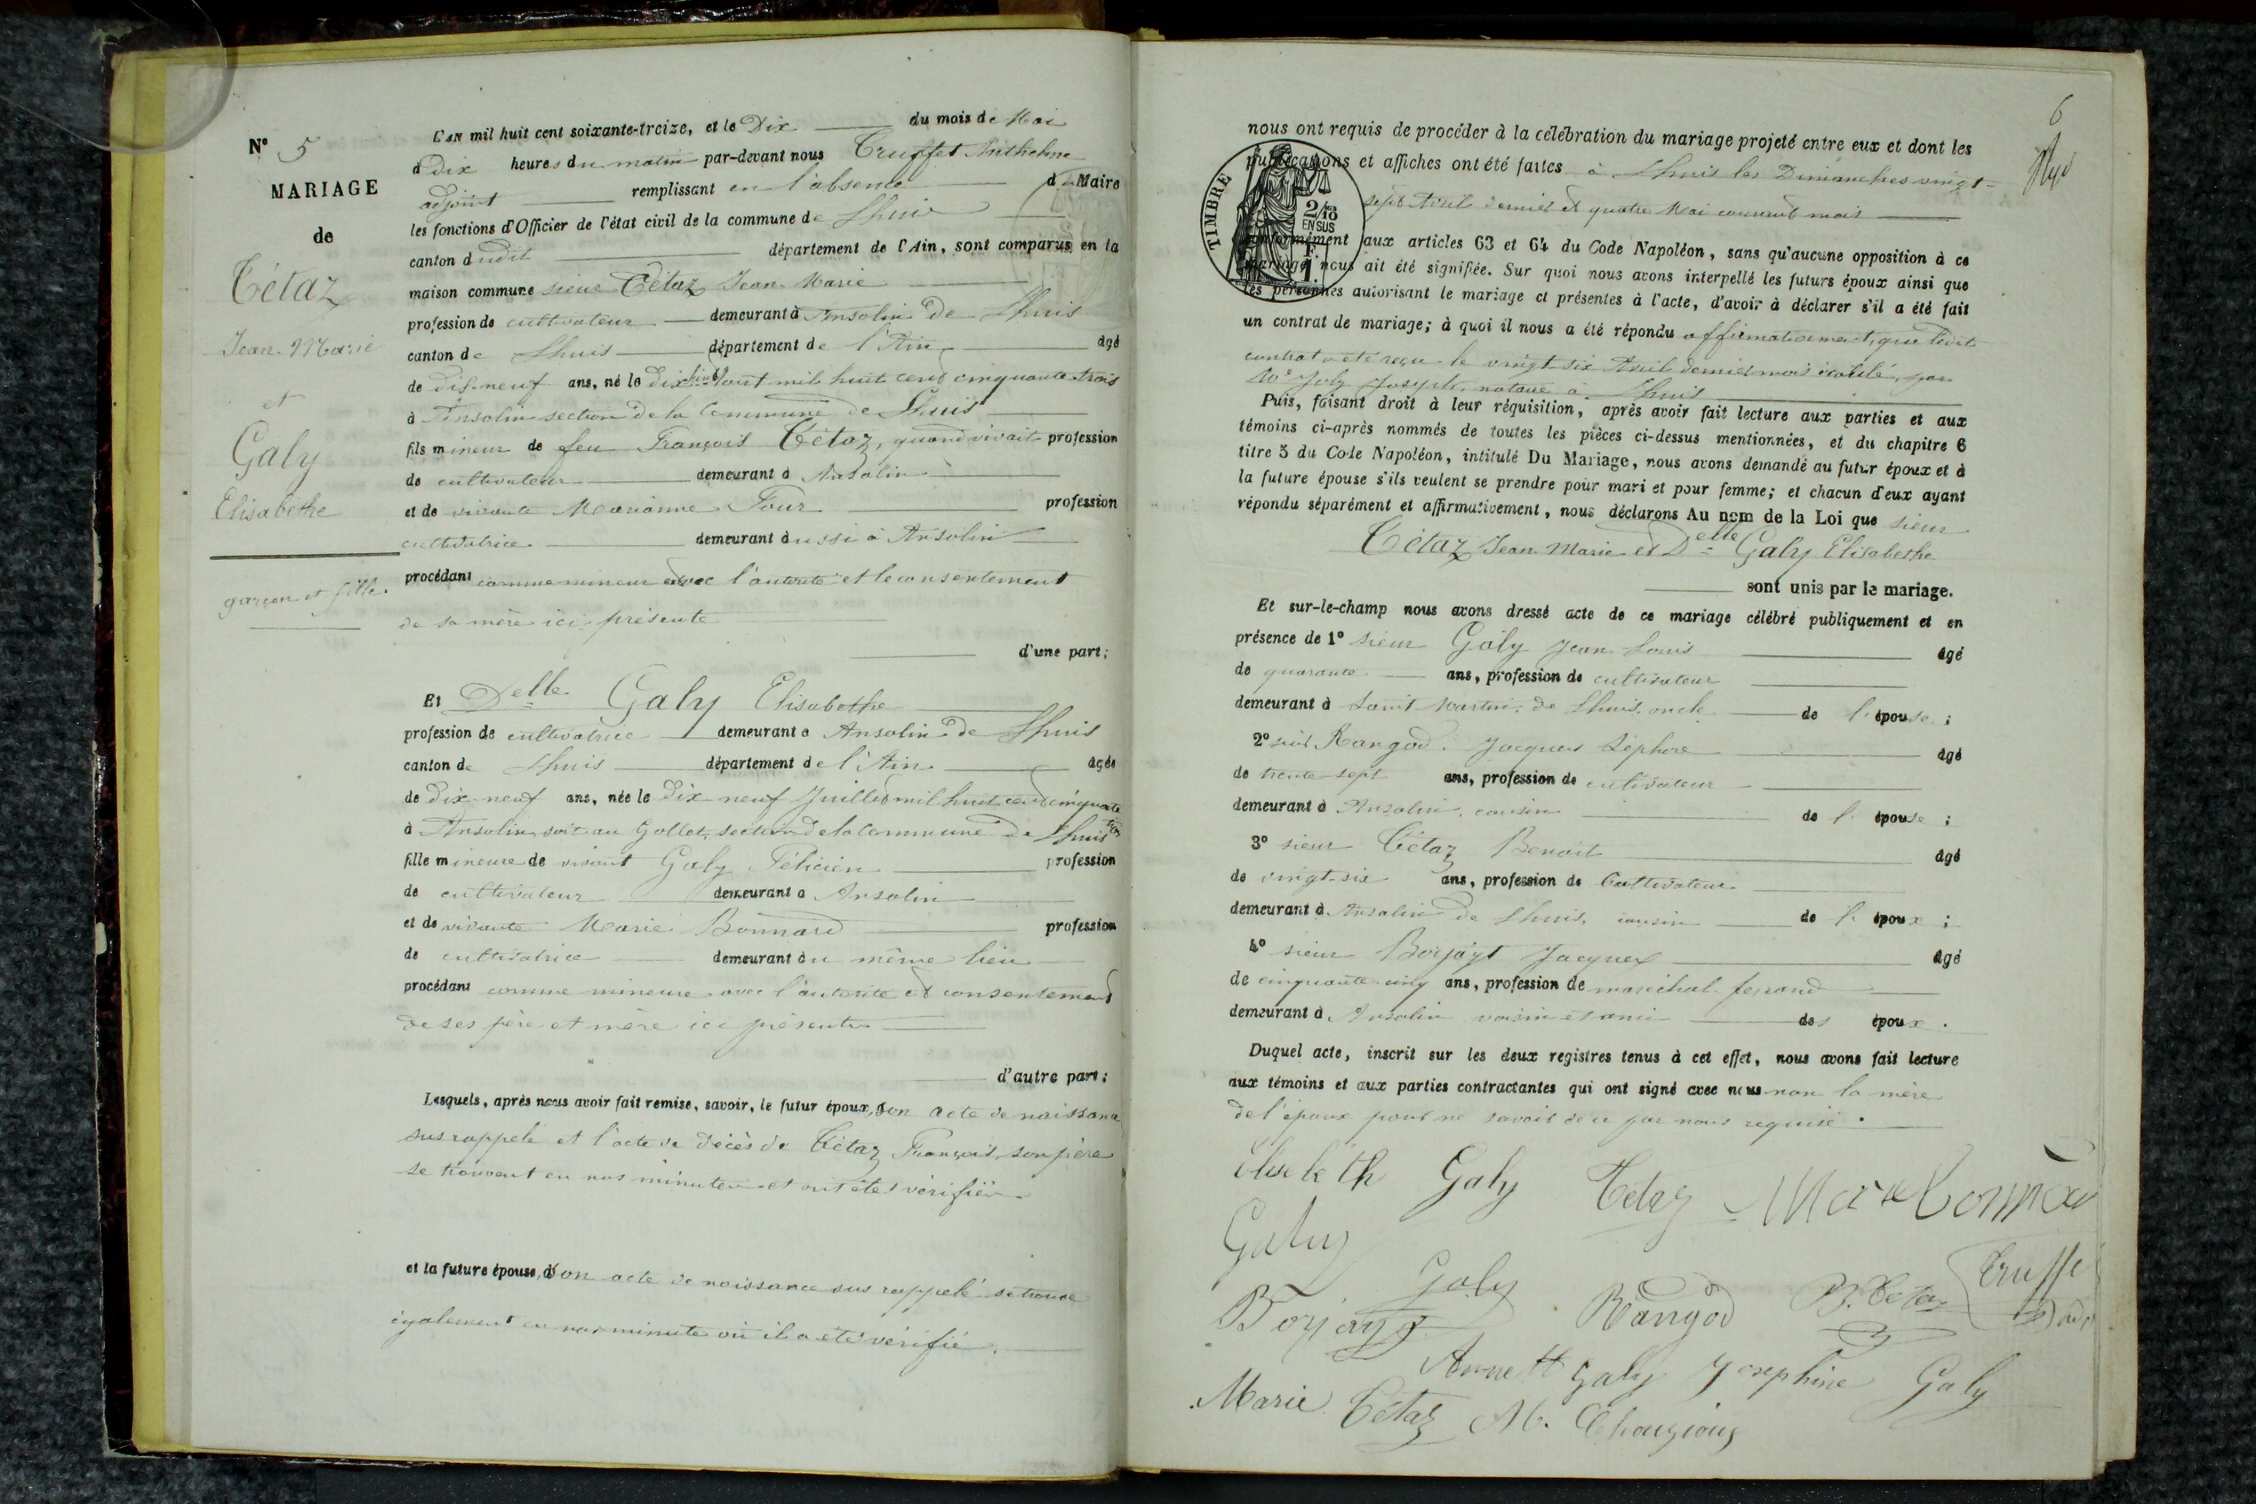 N° 5
MARIAGE
de
Tétaz
Jean-Marie
et
Galy
Elisabethe
garçon et fille.
L'AN mil huit cent soixante-treize, et le Dix du mois de Mai
à Dix heures du matin par-devant nous Truffet Anthelme
adjoint remplissant en l'absence du Maire
les fonctions d'Officier de l'état civil de la commune de Lhuis
canton dudit département de l'Ain, sont comparus en la
maison commune sieur Tétaz Jean-Marie
profession de cultivateur demeurant à Ansolin de Lhuis
canton de Lhuis département de l'Ain âgé
de dix-neuf ans, né le dix huit Aout mil huit cent cinquante-trois
à Ansolin section de la Commune de Lhuis
fils mineur de feu François Tétaz, quand vivait profession
de cultivateur demeurant à Ansolin
et de vivante Marianne Four profession
cultivatrice demeurant aussi à Ansolin
procédant comme mineur avec l'autorité et le consentement
de sa mère ici présente
d'une part;
Et Delle Galy Elisabethe
profession de cultivatrice demeurant à Ansolin de Lhuis
canton de Lhuis département de l'Ain âgée
de Dix-neuf ans, née le Dix-neuf Juillet mil huit cent cinquante trois
à Ansolin soit au Gollet, section de la Commune de Lhuis
fille mineure de vivant Galy Félicien profession
de cultivateur demeurant à Ansolin
et de vivante Marie Bonnard profession
de cultivatrice demeurant au même lieu
procédant comme mineure avec l'autorité et consentement
de ses père et mère ici présents
d'autre part;
Lesquels, après nous avoir fait remise, savoir, le futur époux, son acte de naissance
sus rappelé et l'acte de décès de Tétaz François, son père
se trouvent en nos minutes et ont été vérifiés
et la future épouse, son acte de naissance sus rappelé se trouve
également en nos minute où il a été vérifié.
6
nous ont requis de procéder à la célébration du mariage projeté entre eux et dont les
publications et affiches ont été faites à Lhuis les Dimanches vingt-
sept Avril dernier et quatre Mai courant mois
TIMBRE
2/10
EN SUS
F.
1.
conformément aux articles 63 et 64 du Code Napoléon, sans qu'aucune opposition à ce
mariage nous ait été signifiée. Sur quoi nous avons interpellé les futurs époux ainsi que
les personnes autorisant le mariage et présentes à l'acte, d'avoir à déclarer s'il a été fait
un contrat de mariage; à quoi il nous a été répondu affirmativement, que ledit
contrat a été reçu le vingt six Avril dernier mois écoulé, par
Me Joly Joseph, notaire à Lhuis
Puis, faisant droit à leur réquisition, après avoir fait lecture aux parties et aux
témoins ci-après nommés de toutes les pièces ci-dessus mentionnées, et du chapitre 6
titre 5 du Code Napoléon, intitulé Du Mariage, nous avons demandé au futur époux et à
la future épouse s'ils veulent se prendre pour mari et pour femme; et chacun d'eux ayant
répondu séparément et affirmativement, nous déclarons Au nom de la Loi que sieur
Tétaz Jean-Marie et Delle Galy Elisabethe
sont unis par le mariage.
Et sur-le-champ nous avons dressé acte de ce mariage célébré publiquement et en
présence de 1° sieur Galy Jean Louis âgé
de quarante ans, profession de cultivateur
demeurant à Saint Martin de Lhuis, oncle de l'épouse;
2° sieur Rangod Jacques Séphore âgé
de trente-sept ans, profession de cultivateur
demeurant à Ansolin, cousin de l'épouse;
3° sieur Tétaz Benoit âgé
de vingt-six ans, profession de Cultivateur
demeurant à Ansolin de Lhuis, cousin de l'époux;
4° sieur Borjayt Jacques âgé
de cinquante-cinq ans, profession de maréchal-ferrand
demeurant à Ansolin voisin et ami des époux.
Duquel acte, inscrit sur les deux registres tenus à cet effet, nous avons fait lecture
aux témoins et aux parties contractantes qui ont signé avec nous non la mère
de l'époux pour ne savoir de ce par nous requise.
Elisabeth Galy Tetaz Marie Bonnar
Galy
Galy
Borjayt Rangod B. Tetaz Truffe
Annett Galy Josephine Galy
Marie Tétaz M.